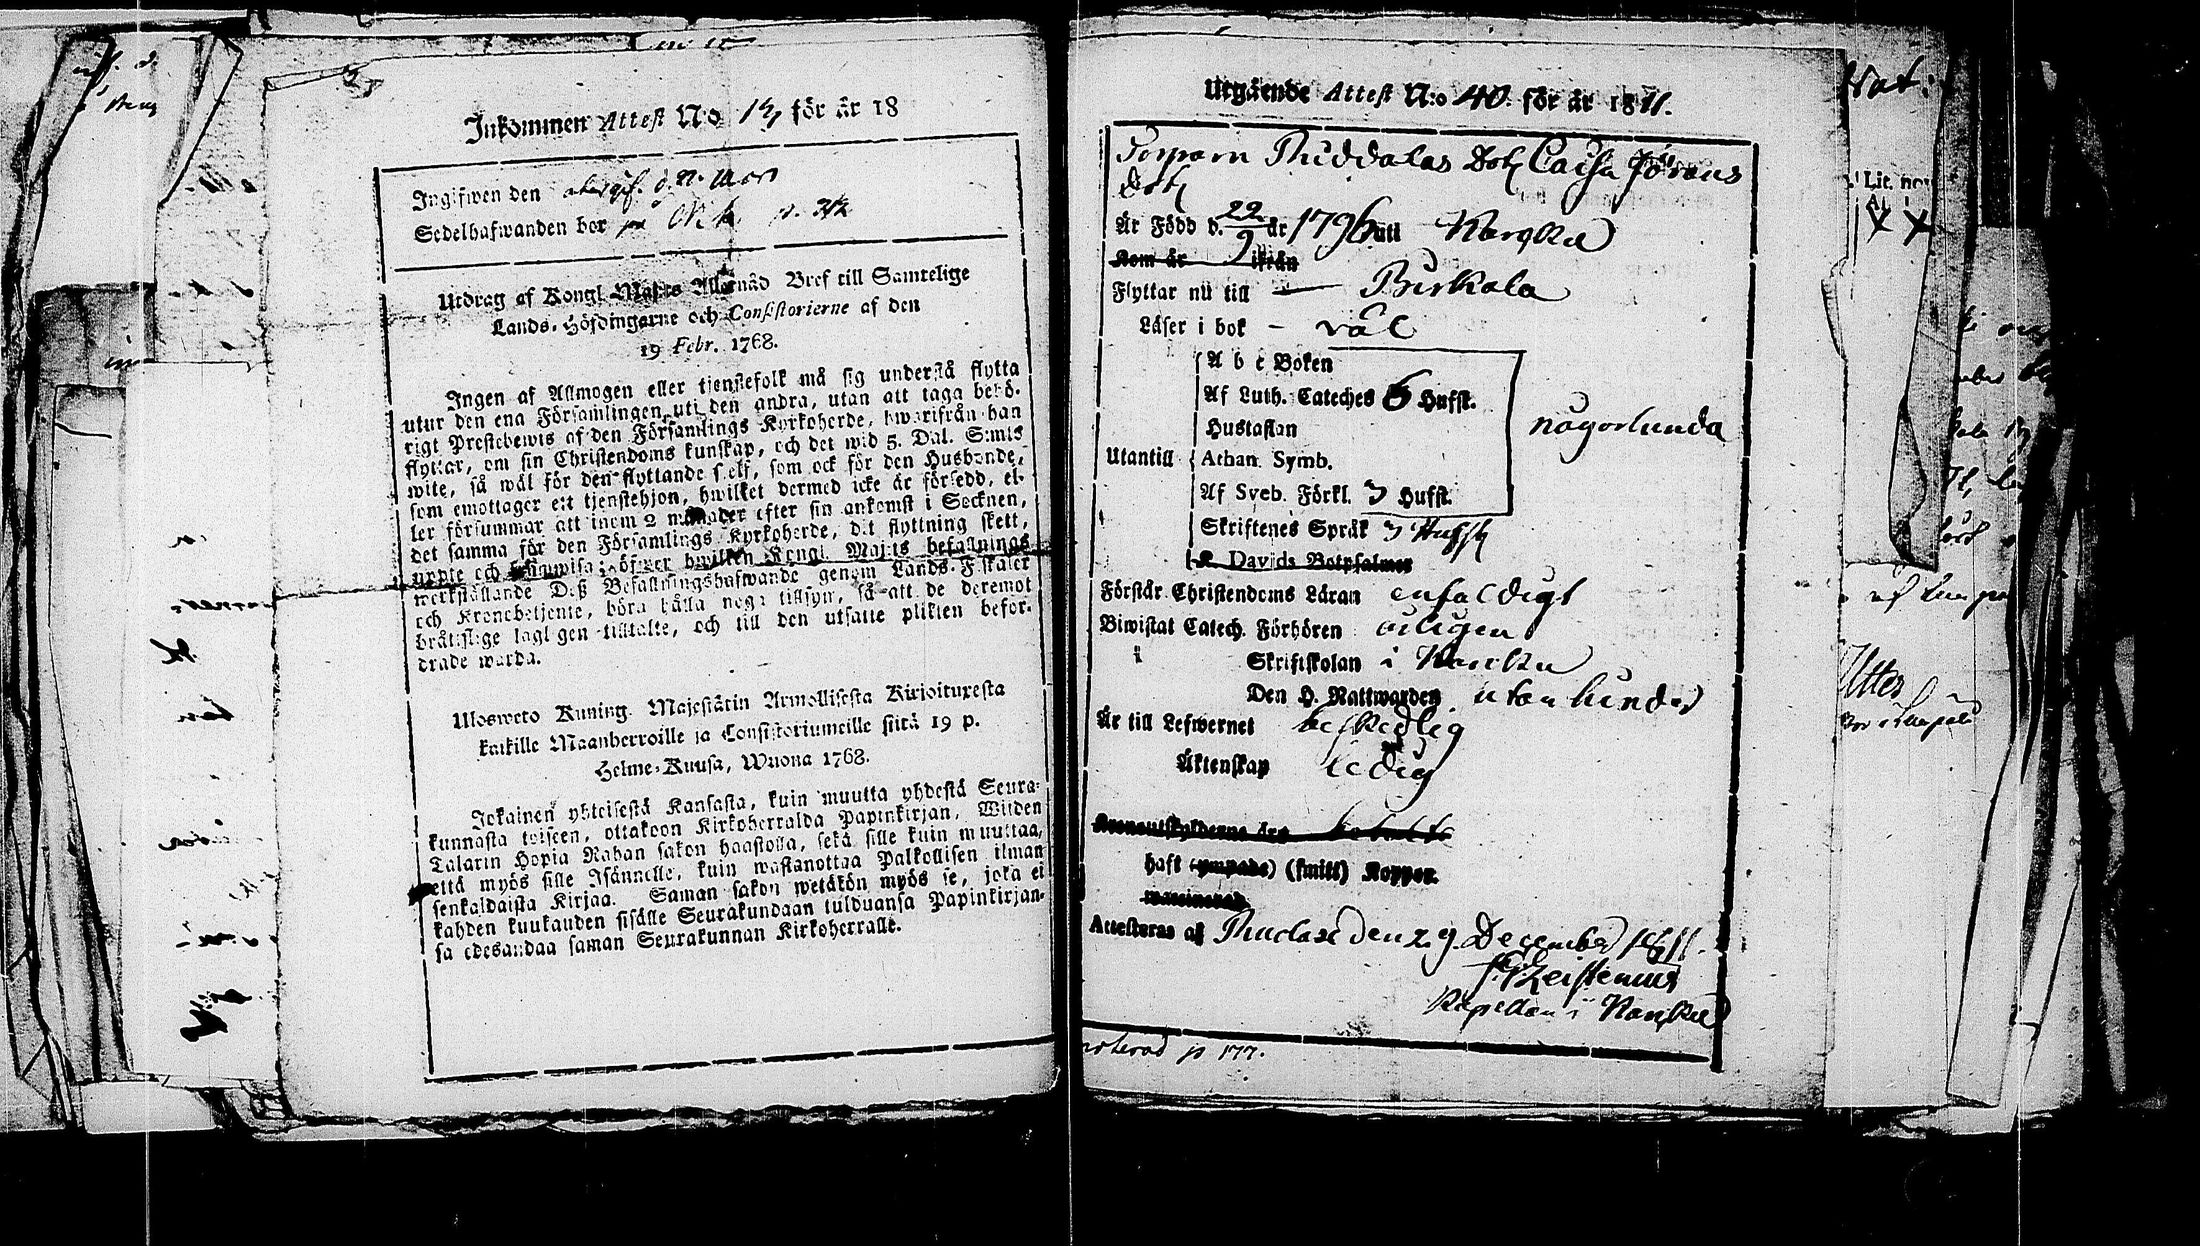 Inkommen Attest N:o 13 för år 18
Ingifwen den d. 22 Mars
Sedelhafwanden bor p.
Utdrag af Kongl. Maj:ts Allernåd Bref till Samtelige
Lands-Höfdingarne och Consistorierne af den
19 Febr. 1768.
Ingen af Allmogen eller tjenstefolk må sig understå flytta
utur den ena Församlingen uti den andra, utan att taga behö-
rigt Prestebewis af den Församlings Kyrkoherde, hwarifrån han
flyttar, om sin Christendoms kunskap, och det wid 5. Dal. S:mts
wite, så wäl för den flyttande sjelf, som ock för den Husbonde,
som emottager ett tjenstehjon, hwilket dermed icke är försedd, el-
ler försummar att inom 2 månader efter sin ankomst i Socknen,
det samma för den Församlings Kyrkoherde, dit flyttning skett,
uppte och hwilken Kongl. Maj:ts befallnings
werkställande Deß Befallningshafwande genom Lands-Fiskaler
och Kronobetjente, böra hålla noga tillsyn, så att de deremot
bråttslige lagligen tilltalte, och till den utsatte plikten befor-
drade warda.
Ulosweto Kuning. Majestätin Armollisesta Kirjoituxesta
kaikille Maanherroille ja Consistoriumeille siitä 19 p.
Helme-Kuusa, Wuona 1768.
Jokainen yhteisestä Kansasta, kuin muutta yhdestä Seura-
kunnasta toiseen, ottakoon Kirkoherralda Papinkirjan, Wiiden
Talarin Hopia Rahan sakon haastolla, sekä sille kuin muuttaa,
että myös sille Isännelle, kuin wastanottaa Palkollisen ilman
senkaldaista Kirjaa. Saman sakon wetäkön myös se, joka ei
kahden kuukauden sisälle Seurakundaan tulduansa Papinkirjan-
sa edesandaa saman Seurakunnan Kirkoherralle.
Utgående Attest N:o 40. för år 1811.
Torparn Dotr Caisa Jörans
dotr
Är Född d. 22/9 år 1796 uti
Kom år ifrån
Flyttar nu till Birkala
Läser i bok - väl
A b c Boken
Af Luth. Cateches 6 Hufst.
Hustaflan någorlunda
Utantill Athan. Symb.
Af Sveb. Förkl. 3 Hufst.
Skriftenes Språk 3 Hufst
Davids Botpsalmer
Förstår Christendoms Läran enfaldigt
Biwistat Catech. Förhören
Skriftskolan i
Den H. Nattwarden utan hinder
Är till Lefwernet beskedlig
Äktenskap ledig
Kronoutskylderne äro betalte
haft (ympade) (smitt) Koppor.
waccinerad
Attesteras af den 29. December 1811.
Kapellan i
p 177.